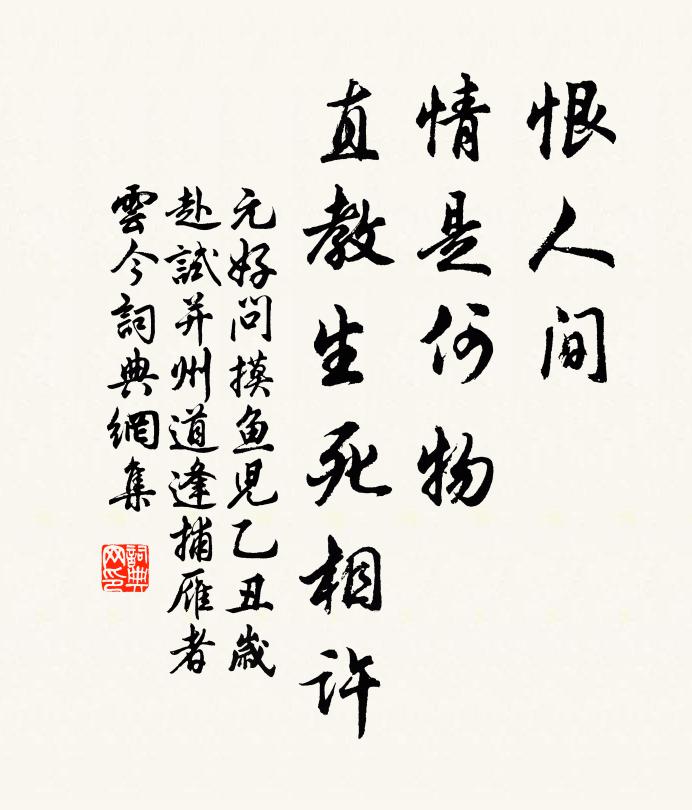 恨人间
情是何物
直教生死相许
元好问摸鱼児乙丑歳
赴試并州道逢捕雁者
雲今詞典網集
詞典网印